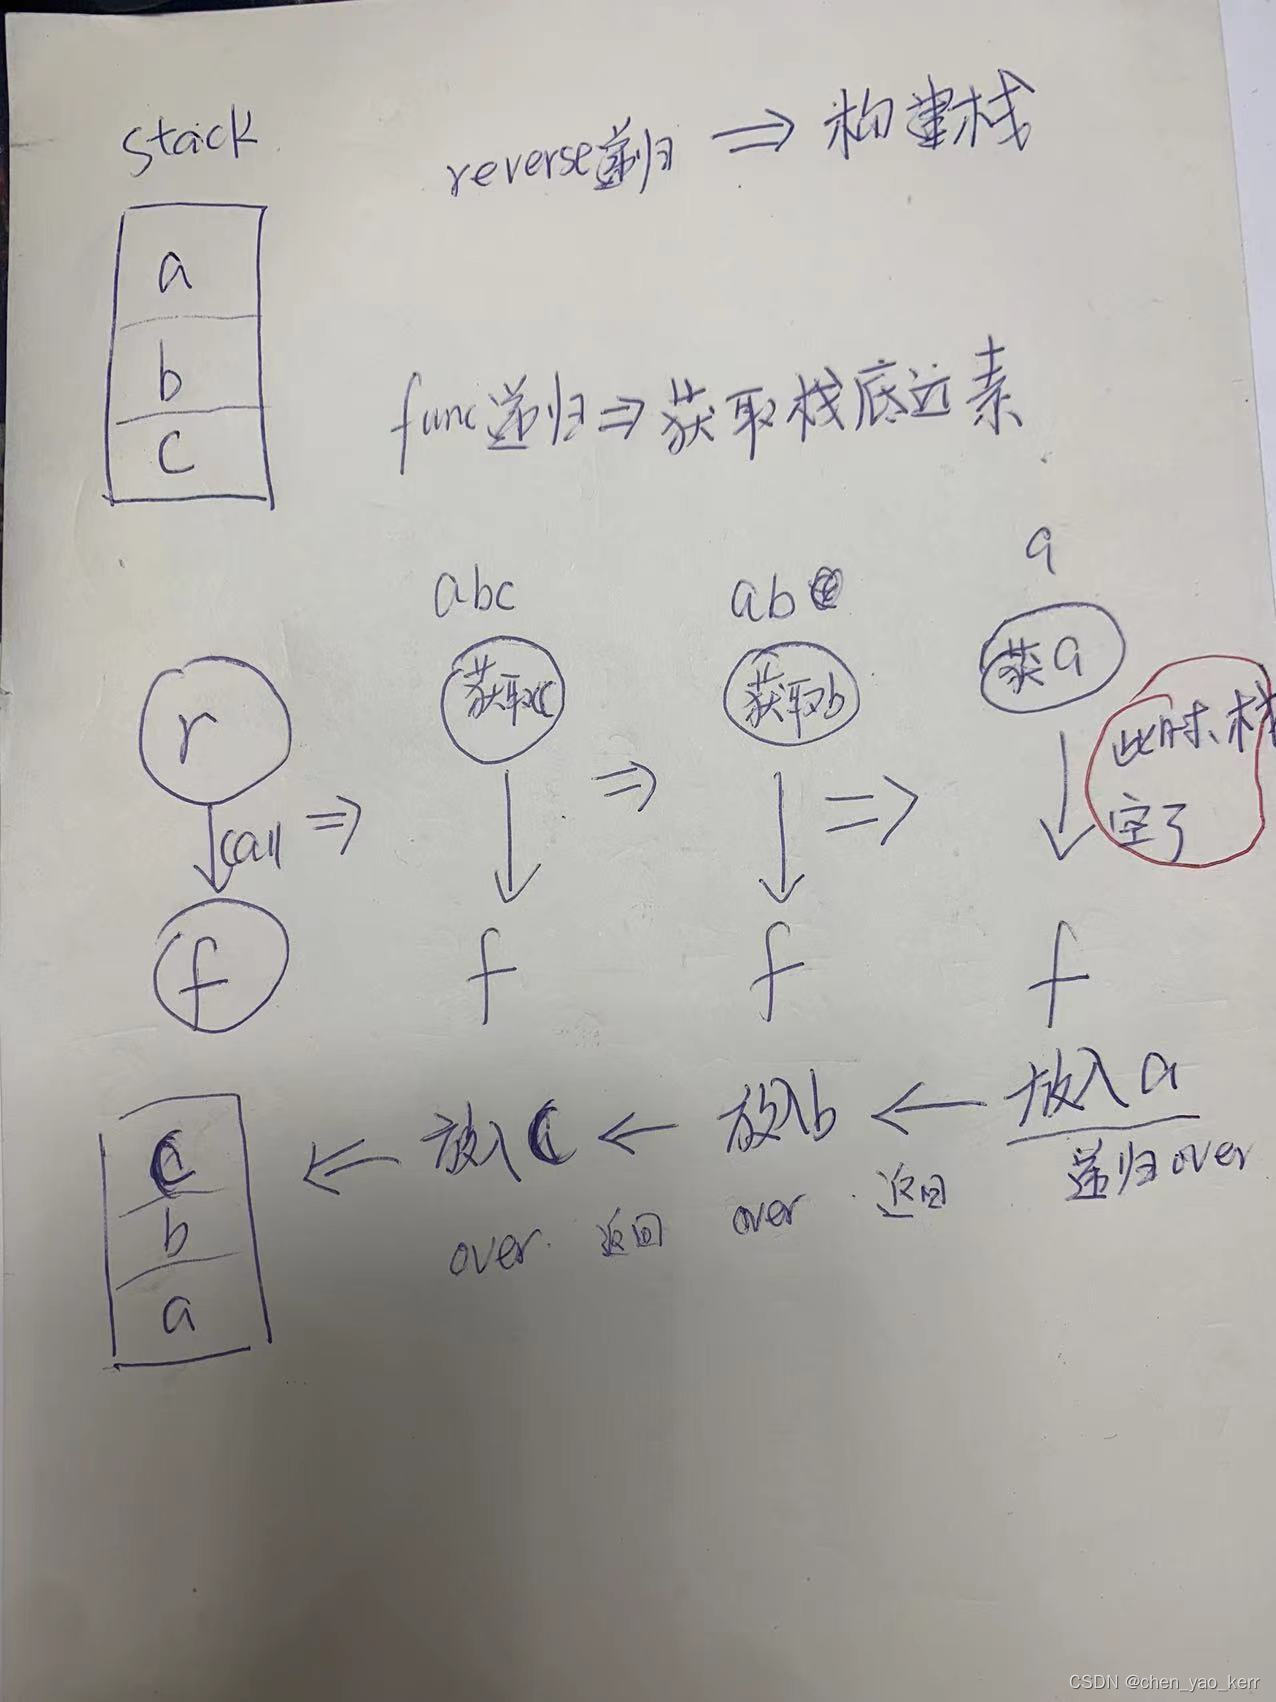 stack
reverse递归 ⇒ 构建栈
a
b
c
func递归⇒获取栈底远素
abc
ab
a
r
获取c
获取b
获a
此时、栈
空了
call ⇒
⇒
⇒
f
f
f
f
c
b
a
← 放入c ← 放入b ← 放入a
over. 返回 over . 返回 递归over
CSDN @chen_yao_kerr